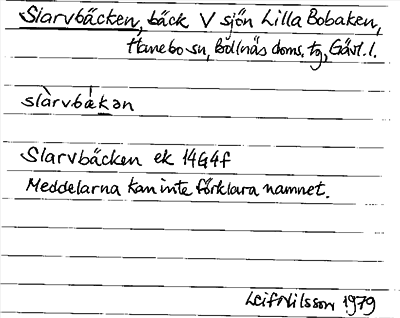 Slarvbäcken, bäck V sjön Lilla Bobaken,
Hanebo sn, Bollnäs doms. tg, Gävl. l.
slàrvbǽkən
Slarvbäcken ek 14G4f
Meddelarna kan inte förklara namnet.
Leif Nilsson 1979